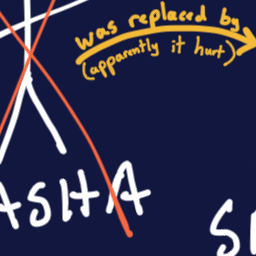 was replaced by
(apparently it hurt)
ASHA
S